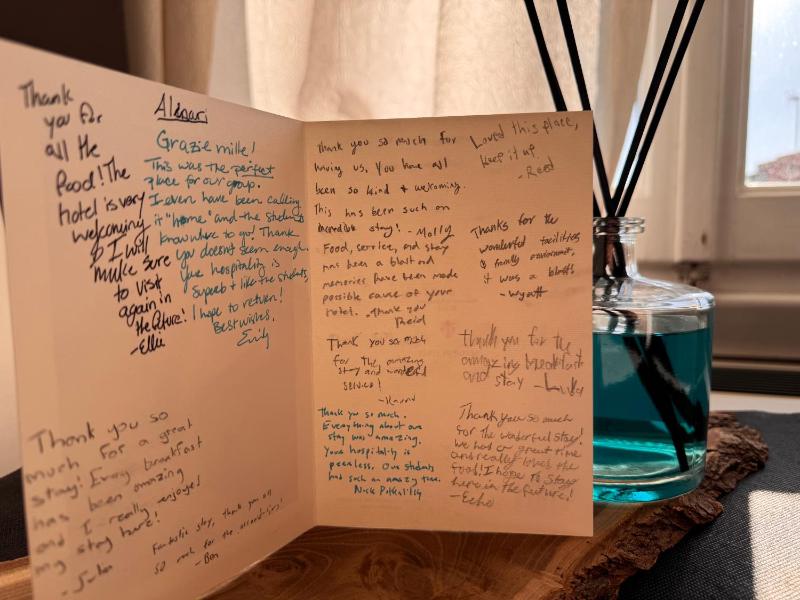 Thank
you for
all the
food! The
hotel is very
welcoming
so I will
make sure
to visit
again in
the future!
-Ellie
Grazie mille!
This was the perfect
place for our group.
I even have been calling
it "home" and the students
know where to go! Thank
you doesn't seem enough.
Your hospitality is
superb + like the students,
I hope to return!
Best wishes,
Emily
Thank you so
much for a great
stay! Every breakfast
has been amazing
and I really enjoyed
my stay here!
Fantastic stay, thank you all
so much for the
-Ben
Thank you so much for
having us. You have all
been so kind + welcoming.
This has been such an
incredible stay! - Molly
Food, service, and stay
has been a blast and
memories have been made
possible cause of your
hotel. Thank you
Reid
Thank you so much
for the amazing
stay and wonderful
service!
Thank you so much.
Everything about our
stay was amazing.
Your hospitality is
peerless. Our students
had such an amazing time.
Nick
Loved this place,
keep it up.
-Reed
Thanks for the
wonderful facilities
& family environment,
it was a blast
-Wyatt
thank you for the
amazing breakfast
and stay
Thank you so much
for the wonderful stay!
We had a great time
and really loved the
food! I hope to stay
here in the future!
-Echo